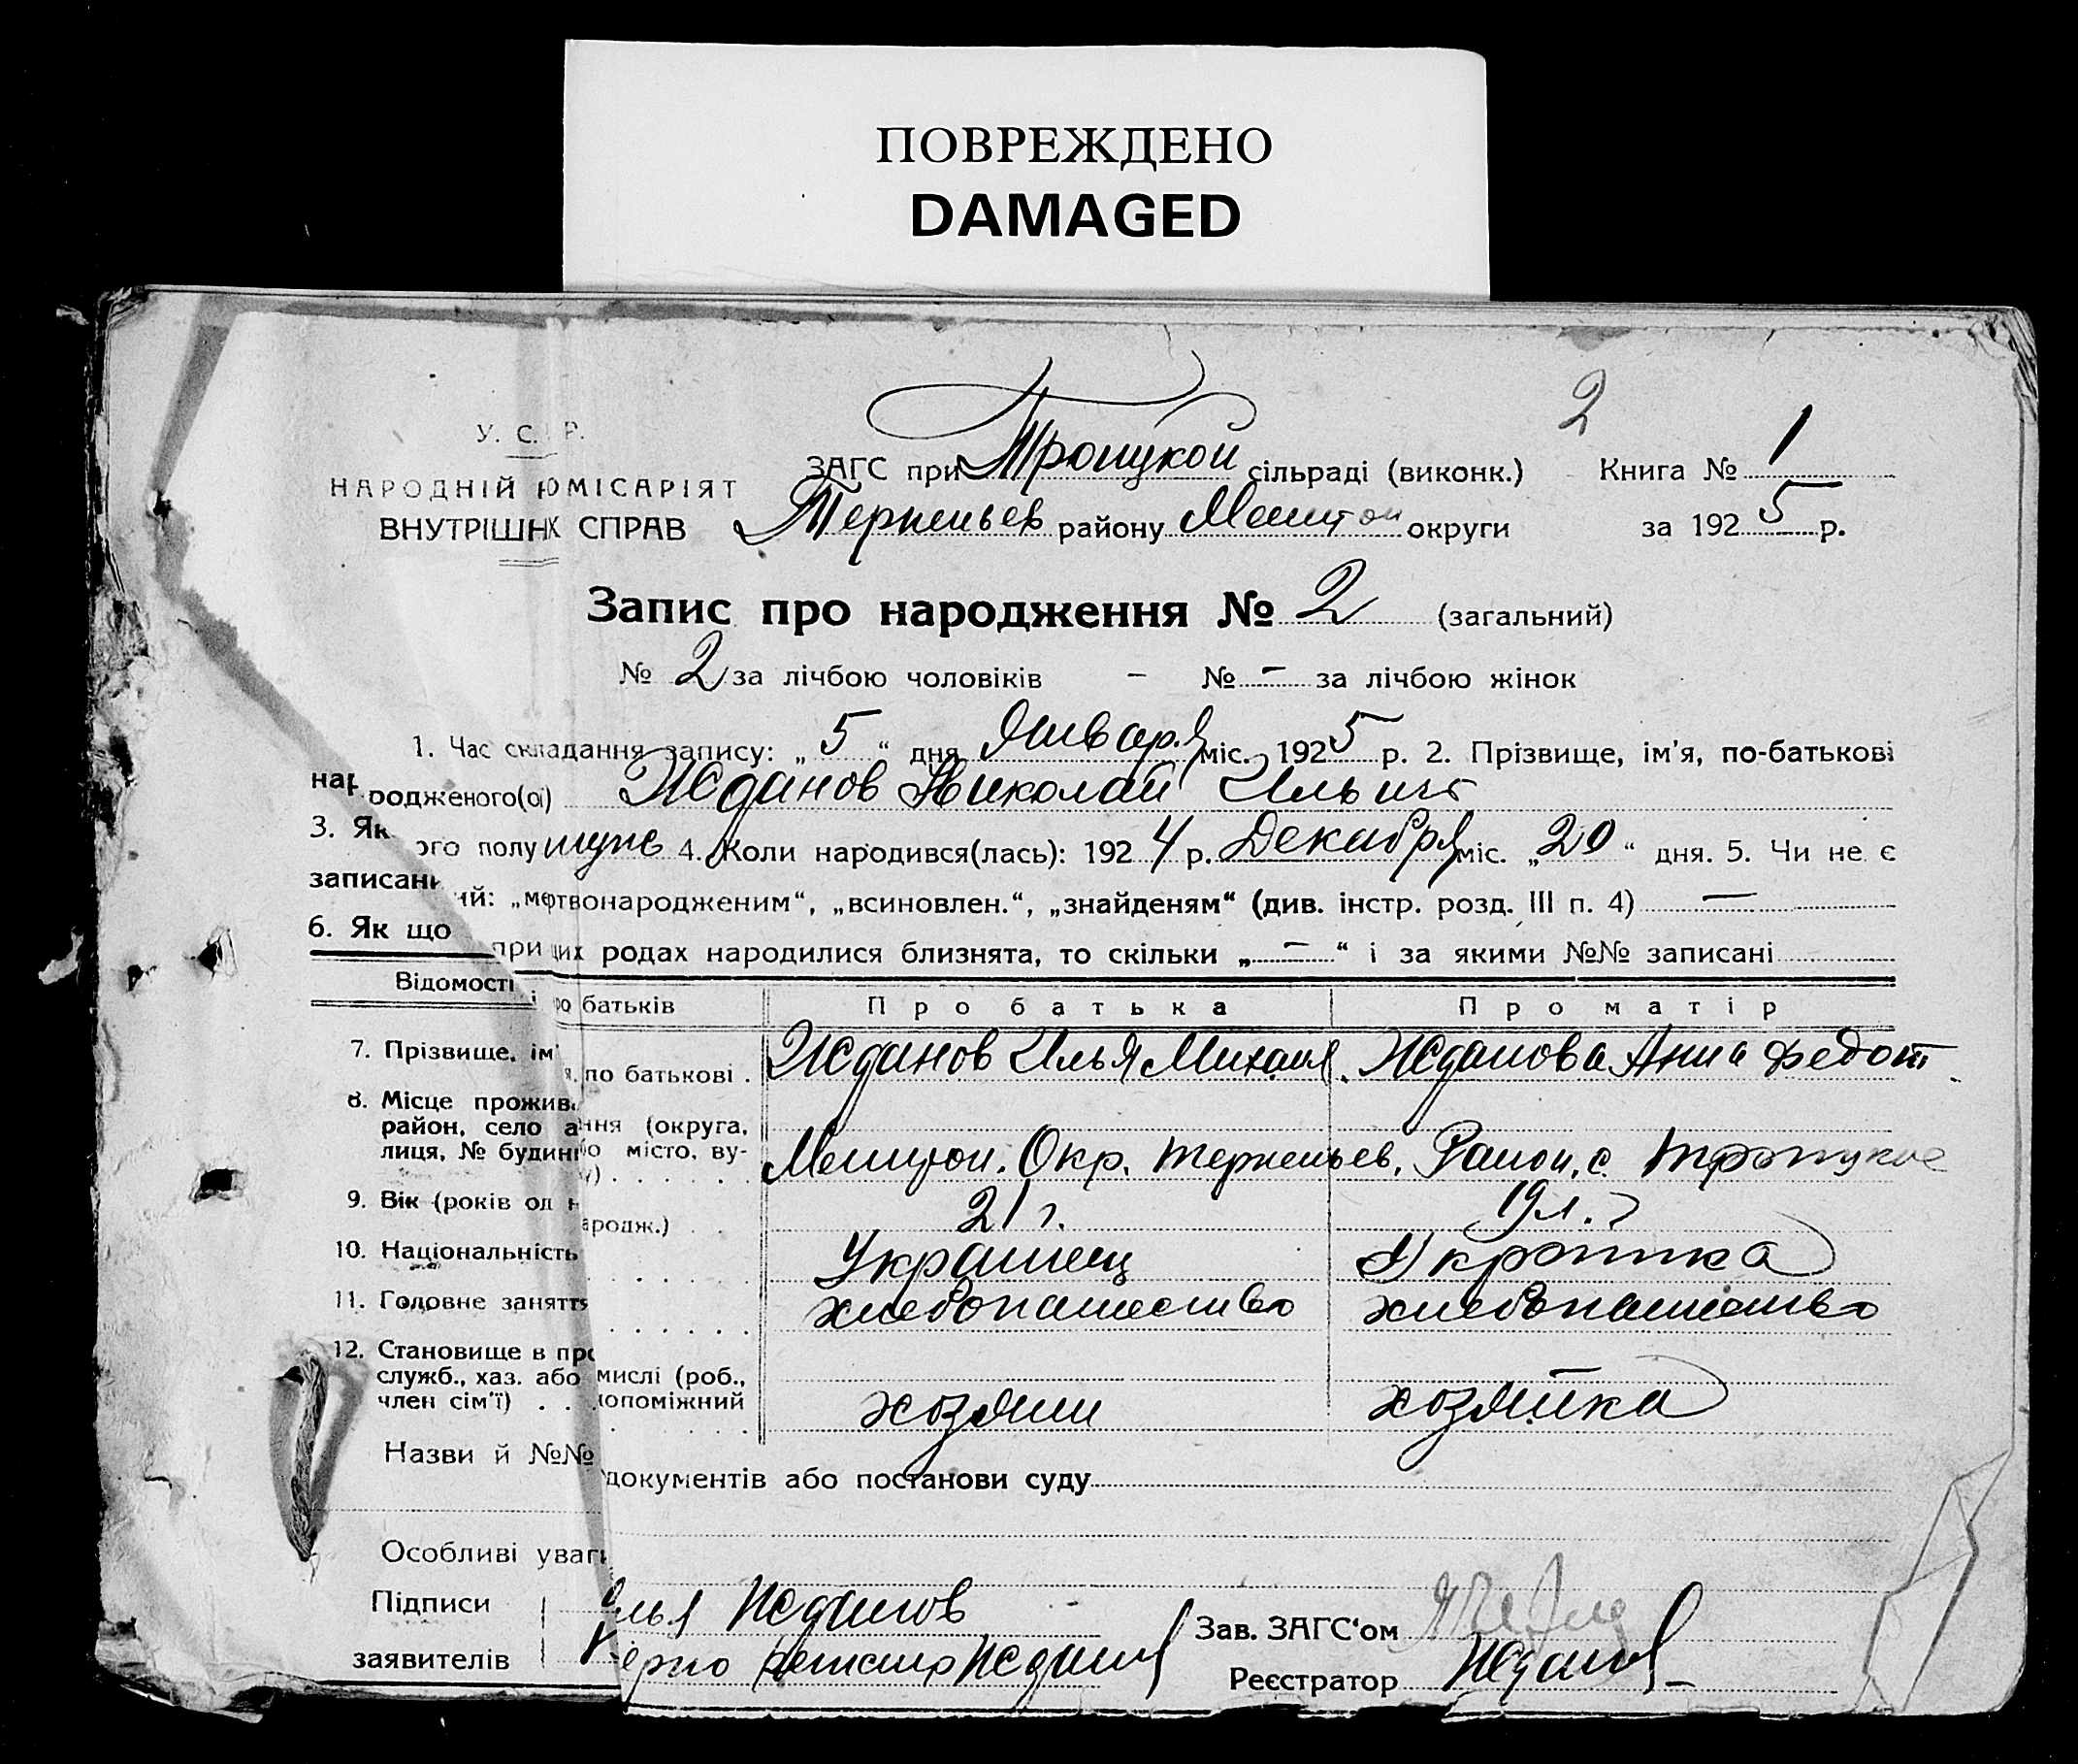 ПОВРЕЖДЕНО
DAMAGED
2
У. С. Р.
НАРОДНІЙ КОМІСАРІЯТ
ВНУТРІШНІХ СПРАВ
ЗАГС при Троицкой сільраді (виконк.) Книга № 1
Терпеньев району Мелитоп округи за 1925 р.
Запис про народження № 2 (загальний)
№ 2 за лічбою чоловіків – № – за лічбою жінок
1. Час складання запису: „5“ дня Января міс. 1925 р. 2. Прізвище, ім'я, по-батькові
народженого(ої) Жданов Николай Ильич
3. Якого полу муж 4. Коли народився(лась): 1924 р. Декабря міс. „20“ дня. 5. Чи не є
записаний: „мертвонародженим“, „всиновлен.“, „знайденям“ (див. інстр. розд. III п. 4) —
6. Як що при цих родах народилися близнята, то скільки „–“ і за якими №№ записані
Відомості про батьків Про батька Про матір
7. Прізвище, ім'я, по батькові . Жданов Илья Михаил. Жданова Анна Федот.
8. Місце проживання (округа,
район, село або місто, ву-
лиця, № будинку) . . . . . . Мелитоп. Окр. Терпеньев. Район, с. Троицкое
9. Вік (років од народж.) . . 21 г. 19 л.
10. Національність . . . . . . Украинец Украинка
11. Головне заняття . . . . . . хлебопашество хлебопашество
12. Становище в промислі (роб.,
служб., хаз. або допоміжний
член сім'ї) . . . . . . хозяин хозяйка
Назви й №№ документів або постанови суду
Особливі уваги
Підписи Илья Жданов
Зав. ЗАГС'ом
заявителів Жданов
Реєстратор Жданов